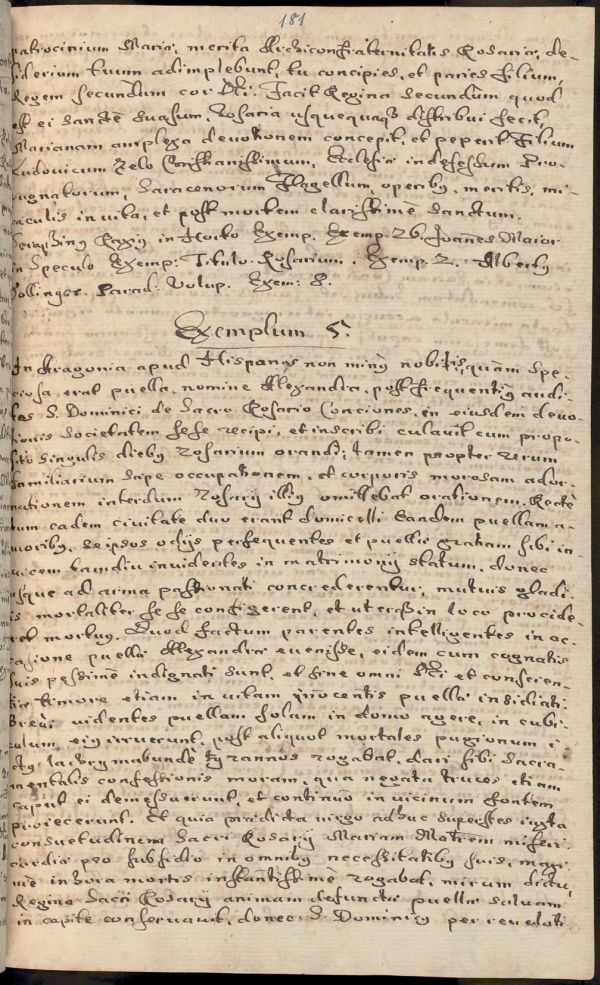 181
patrocinium Mariæ, merita Archiconfraternitatis Rosariæ, de-
siderium tuum adimplebunt, tu concipies, et paries Filium,
Regem secundum cor Dei. Facit Regina secundum quod
est ei sanctè suasum, Rosaria usquequaq distribui fecit,
Marianam amplexa devotionem concepit, et peperit Filium
Ludovicum Zelo Christianissimum, Ecclesiæ indefessum Pro-
pugnatorum, Saracenorum Flagellum, operibg, meritis, mi-
raculis in vita, et post mortem clarissimè sanctum.
in Horto Exemp. Exemp. 26. Joannes Maior
in Speculo Exemp: Titulo. Rosarium. Exemp. 2. Albertg
Parad: Volup. Exem: 8.
Exemplum 5.
In Aragonia apud Hispanos non ming nobilis, quàm spe-
ciosa, erat puella, nomine Alexandra, post frequentig audi-
tas S. Dominici de Sacro Rosario Conciones, in eiusdem devo-
tionis societatem sese recipi, et inscribi curavit cum propo-
sito singulis diebg Rosarium orandi; tamen propter rerum
familiarium sæpe occupationem, et corporis morosam ador-
nationem interdum Rosarij illig omittebat orationem. Rectè
tum eadem civitate duo erant domicelli eandem puellam a-
moribg, seipsos odijs persequentes et puellæ gratiam sibi in-
vicem tamdiu invidentes in matrimonij statum, donec
usque ad arma passionati concrederentur, mutuis gladi-
is mortaliter sese confligerent, et uterq in loco procide-
ret mortug. Quod factum parentes intelligentes in oc-
casione puellæ Alexandræ evenisse, eidem cum cognatis
suis pessimè indignati sunt, et sine omni Dei et conscien-
tiæ timore etiam in vitam innocentis puellæ insidiati
Brevi videntes puellam solam in domo agere, in cubi-
culum eig irruerunt, post aliquot mortales pugionum i-
ctg, lachrymabundè tyrannos rogabat, dari sibi Sacra-
mentalis confessionis moram, qua negata truces etiam
caput ei demessuerunt, et continuò in vicinum fontem
proiecerunt. Et quia prædicta virgo adhuc superstes iuxta
consuetudinem Sacri Rosarij Mariam Matrem miseri-
cordiæ pro subsidio in omnibg necessitatibg suis, maxi-
mè in hora mortis instantissimè rogabat, mirum dictu,
Regina Sacri Rosarij animam defunctæ puellæ salvam
in capite conservavit, donec S. Dominicg per revelati-